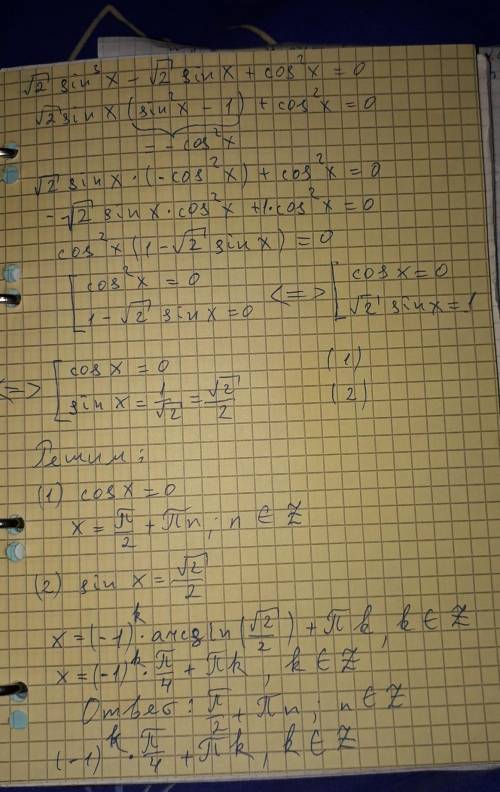 √2 sin³x - √2 sin x + cos²x = 0
√2 sin x (sin²x - 1) + cos²x = 0
= - cos²x
√2 sin x · (-cos²x) + cos²x = 0
-√2 sin x · cos²x + 1 · cos²x = 0
cos²x (1 - √2 sin x) = 0
[ cos²x = 0 ; 1 - √2 sin x = 0 <=> [ cos x = 0 ; √2 sin x = 1
<=> [ cos x = 0 (1)
sin x = 1/√2 = √2/2 (2)
Решим:
(1) cos x = 0
x = π/2 + πn ; n ∈ Z
(2) sin x = √2/2
x = (-1)^k · arcsin(√2/2) + πk, k ∈ Z
x = (-1)^k · π/4 + πk, k ∈ Z
Ответ: π/2 + πn ; n ∈ Z
(-1)^k · π/4 + πk, k ∈ Z